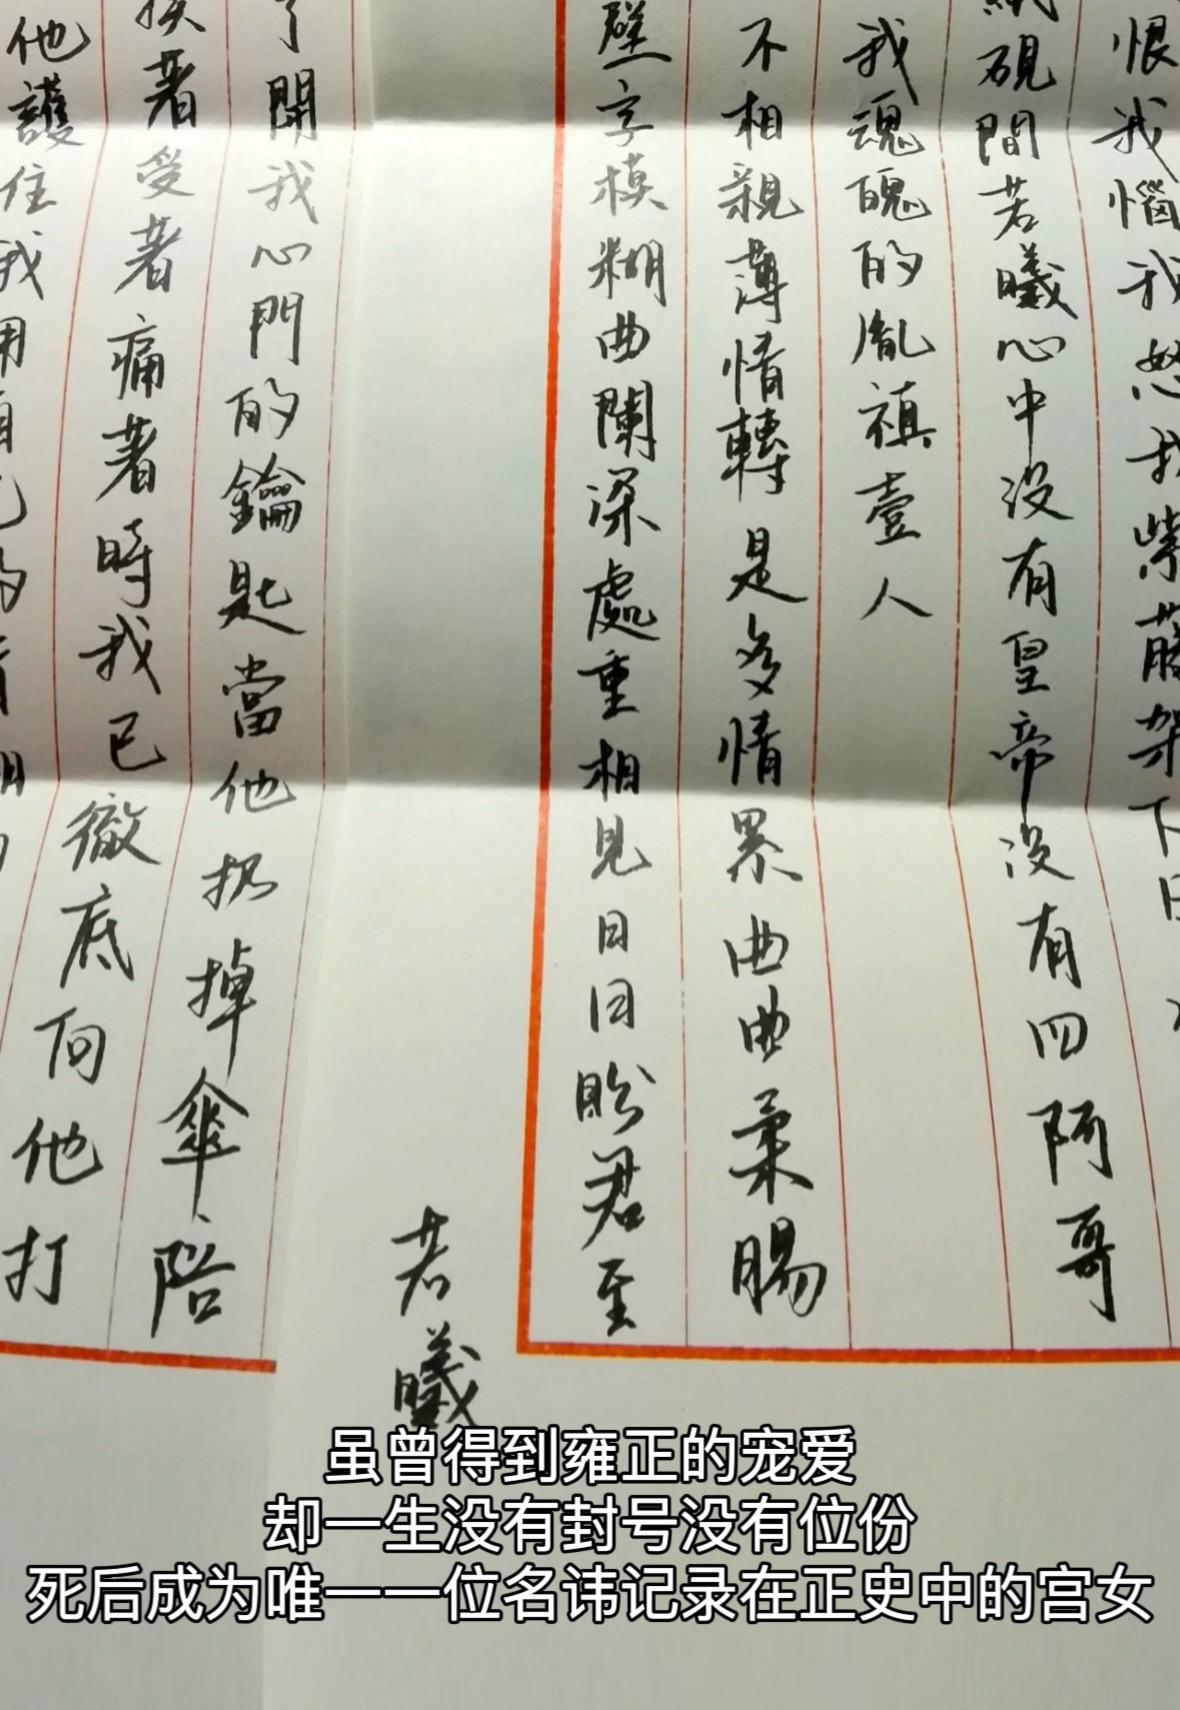 恨我惱我怒我紫藤架下日
硯間若曦心中没有皇帝没有四阿哥
我魂魄的胤禛壹人
不相親薄情轉是多情累曲曲柔腸
壁字模糊曲闌深處重相見日日盼君至
若曦
了開我心門的鑰匙當他扔掉傘陪
挨著受著痛著時我已徹底向他打
他護住我用自己的
虽曾得到雍正的宠爱
却一生没有封号没有位份
死后成为唯一一位名讳记录在正史中的宫女